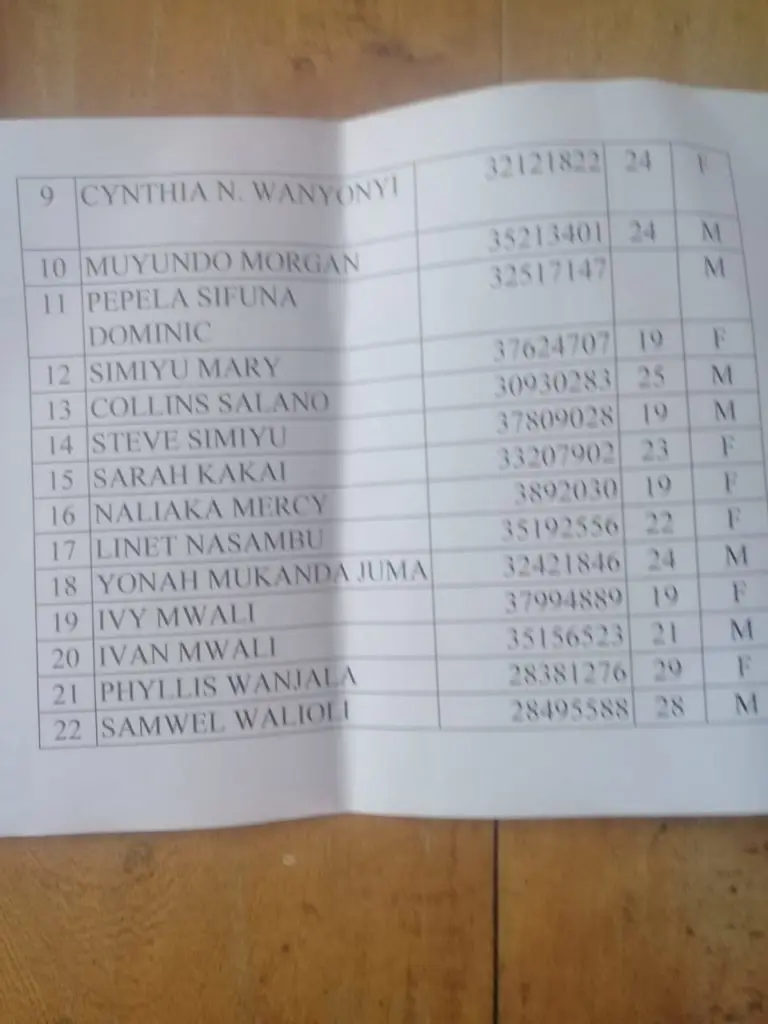 9 CYNTHIA N. WANYONYI 32121822 24 F
10 MUYUNDO MORGAN 35213401 24 M
11 PEPELA SIFUNA 32517147 M
DOMINIC
12 SIMIYU MARY 37624707 19 F
13 COLLINS SALANO 30930283 25 M
14 STEVE SIMIYU 37809028 19 M
15 SARAH KAKAI 33207902 23 F
16 NALIAKA MERCY 3892030 19 F
17 LINET NASAMBU 35192556 22 F
18 YONAH MUKANDA JUMA 32421846 24 M
19 IVY MWALI 37994889 19 F
20 IVAN MWALI 35156523 21 M
21 PHYLLIS WANJALA 28381276 29 F
22 SAMWEL WALIOLI 28495588 28 M